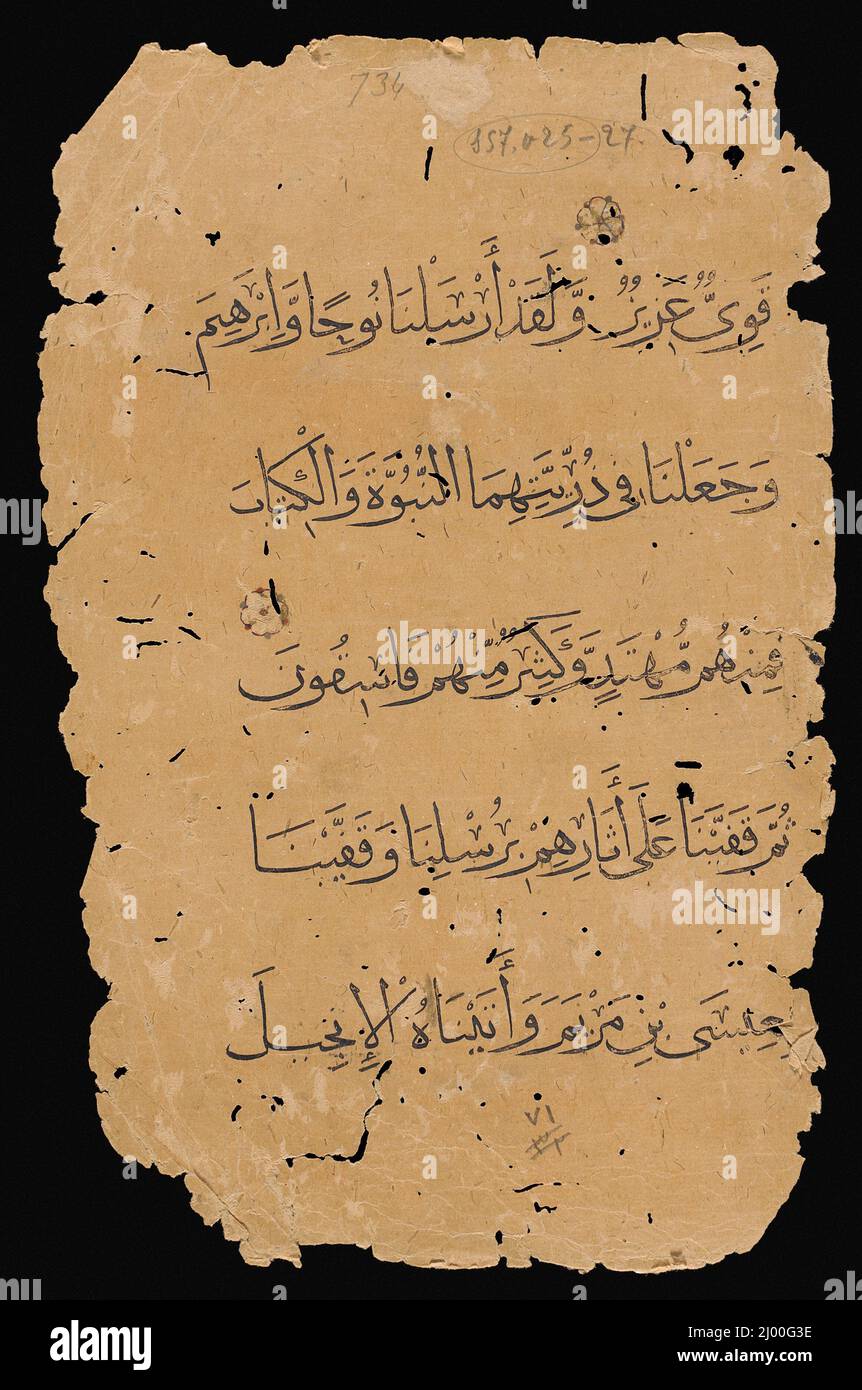 734
S57, v25-27.
قَوِيٌّ عَزِيزٌ وَّلَقَدْ أَرْسَلْنَا نُوحًا وَّاِبْرٰهِيمَ
وَجَعَلْنَا فِي ذُرِّيَّتِهِمَا النُّبُوَّةَ وَالْكِتَابَ
فَمِنْهُمْ مُّهْتَدٍ وَّكَثِيرٌ مِّنْهُمْ فَاسِقُونَ
ثُمَّ قَفَّيْنَا عَلَى أَثَارِهِمْ بِرُسُلِنَا وَقَفَّيْنَا
بِعِيسَى بْنِ مَرْيَمَ وَأَتَيْنَاهُ الْإِنْجِيلَ
٧١
alamy
Image ID: 2J00G3E
www.alamy.com